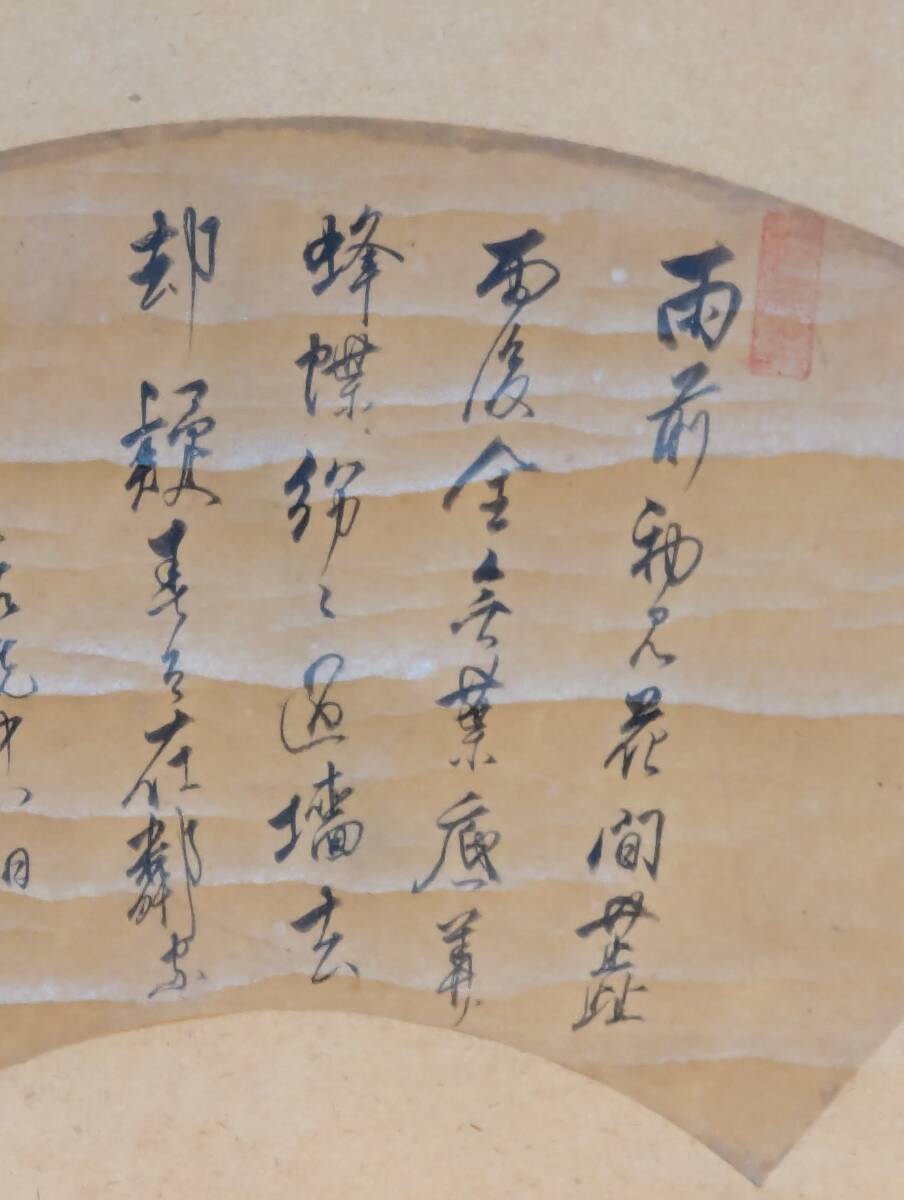 雨前初見花間蕋
雨後全無葉底華
蜂蝶紛〻過墻去
却疑春色在鄰家